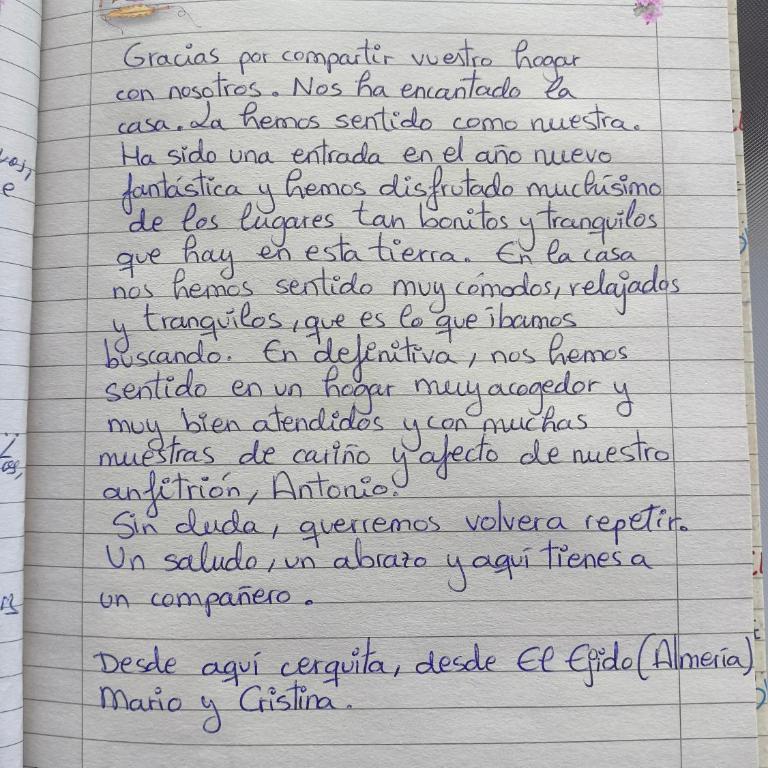 Gracias por compartir vuestro hogar
con nosotros. Nos ha encantado la
casa. La hemos sentido como nuestra.
Ha sido una entrada en el año nuevo
fantástica y hemos disfrutado muchísimo
de los lugares tan bonitos y tranquilos
que hay en esta tierra. En la casa
nos hemos sentido muy cómodos, relajados
y tranquilos, que es lo que ibamos
buscando. En definitiva, nos hemos
sentido en un hogar muy acogedor y
muy bien atendidos y con muchas
muestras de cariño y afecto de nuestro
anfitrión, Antonio.
Sin duda, querremos volver a repetir.
Un saludo, un abrazo y aquí tienes a
un compañero.
Desde aquí cerquita, desde El Ejido (Almería)
Mario y Cristina.